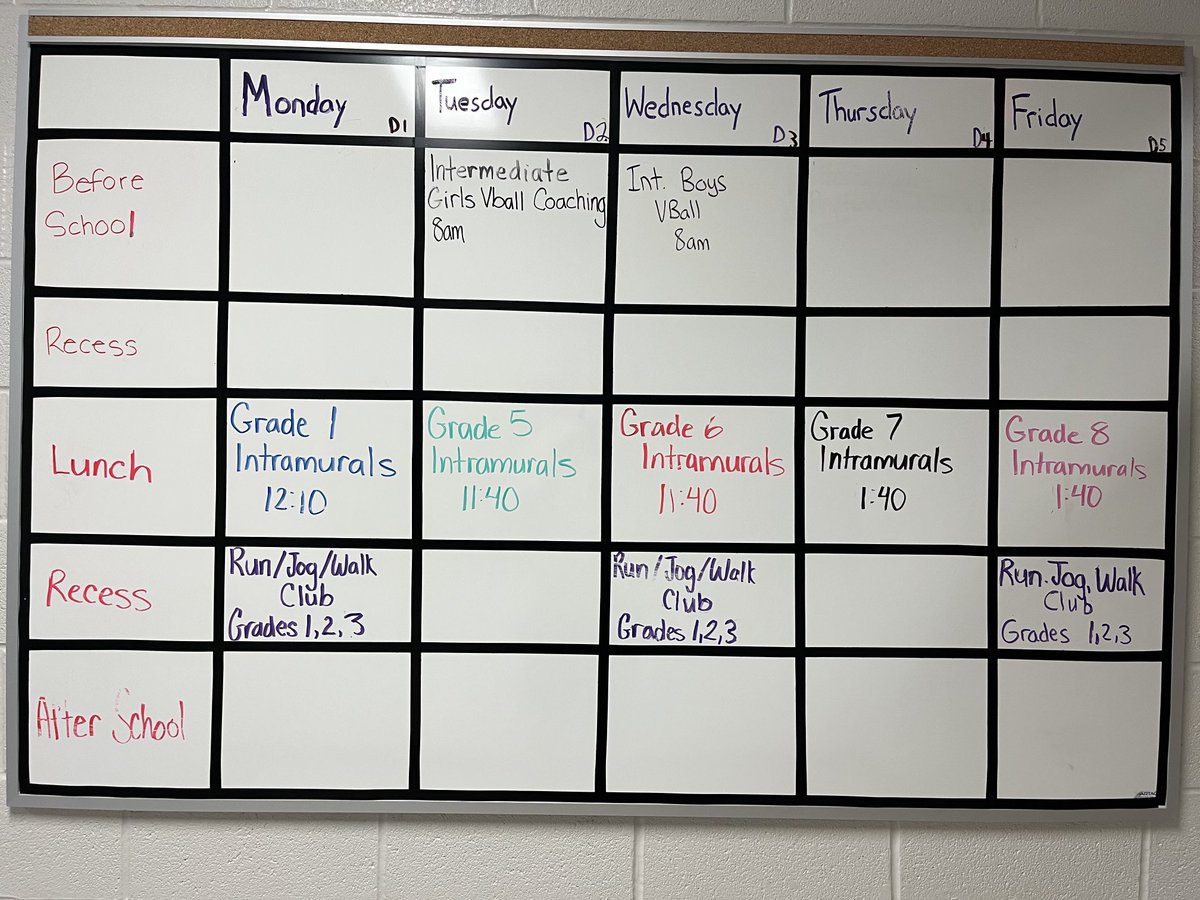 Monday D1
Tuesday D2
Wednesday D3
Thursday D4
Friday D5
Before
School
Intermediate
Girls Vball Coaching
8am
Int. Boys
VBall
8am
Recess
Lunch
Grade 1
Intramurals
12:10
Grade 5
Intramurals
11:40
Grade 6
Intramurals
11:40
Grade 7
Intramurals
1:40
Grade 8
Intramurals
1:40
Recess
Run/Jog/Walk
Club
Grades 1,2,3
Run/Jog/Walk
Club
Grades 1,2,3
Run.Jog.Walk
Club
Grades 1,2,3
After School